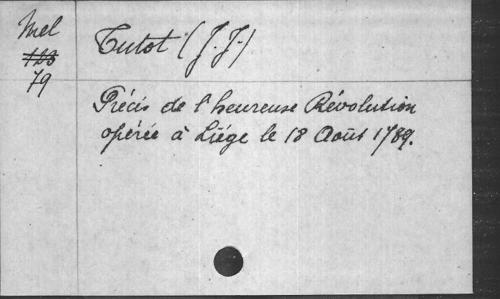 Mel
123
79
Tutot (J. J.)
Précis de l'heureuse Révolution
opérée à Liége le 18 Août 1789.